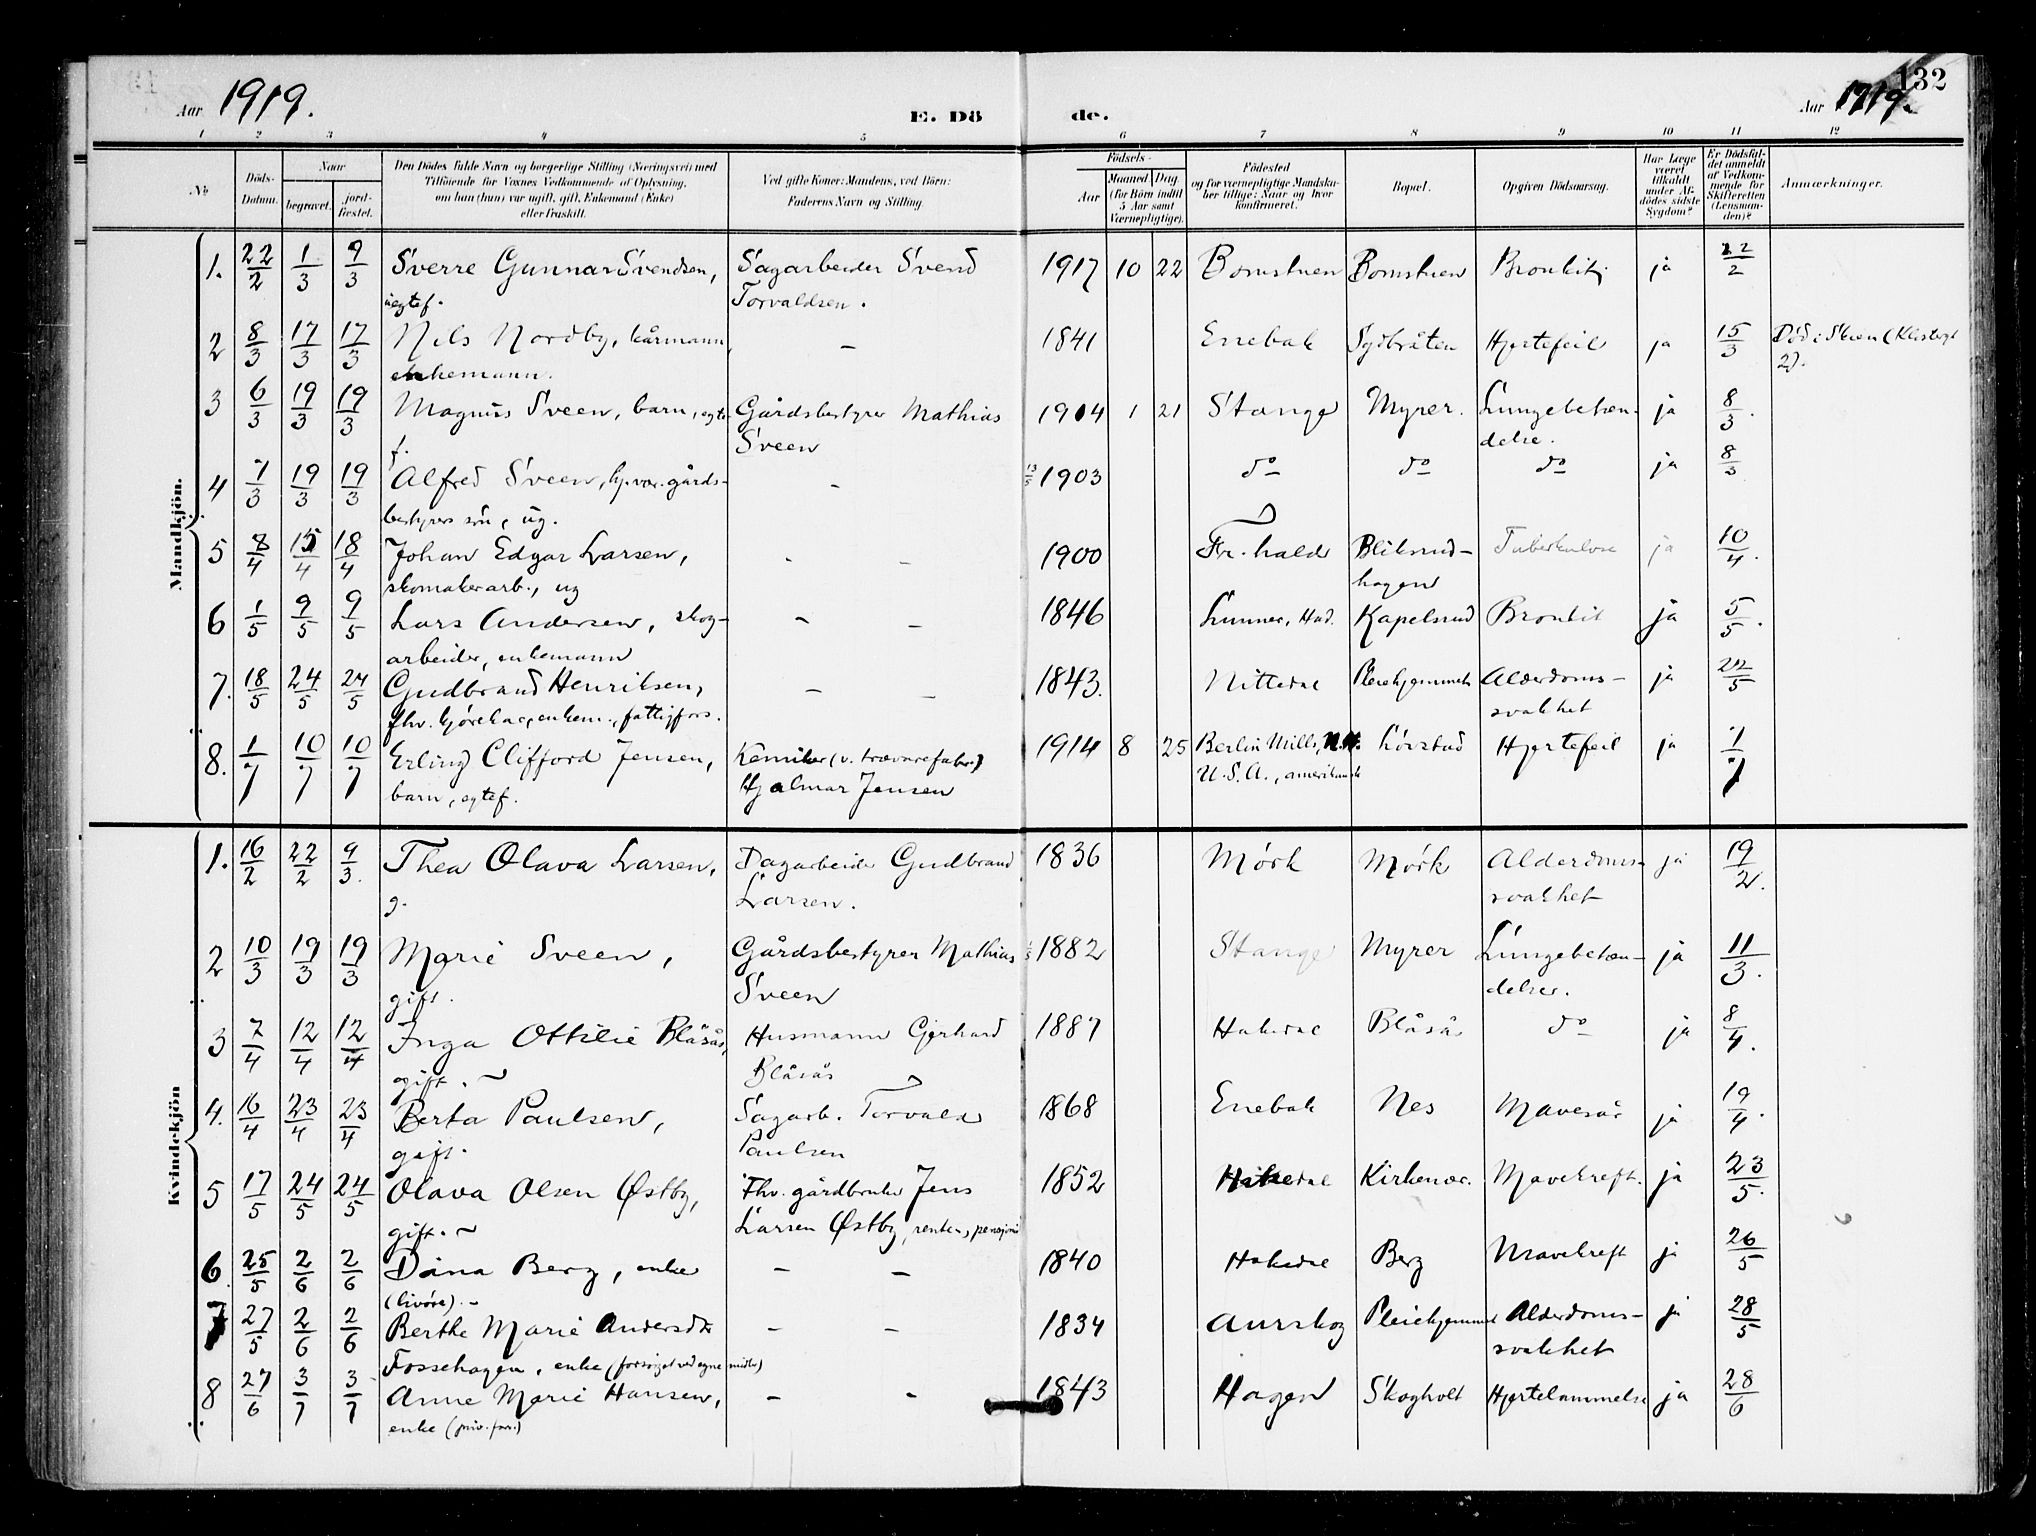 132
Aar 1919.
E. Dö
de.
Aar 1919.
1 2 3 4 5 6 7 8 9 10 11 12
No
Döds-Datum.
Naar
begravet.
jordfæstet.
Den Dödes fulde Navn og borgerlige Stilling (Næringsvei) med
Tilföiende for Voxnes Vedkommende af Oplysning,
om han (hun) var ugift, gift, Enkemand (Enke)
eller fraskilt.
Ved gifte Koner: Mandens, ved Börn:
Faderens Navn og Stilling
Födsels-
Aar
Maaned Dag
(for Börn indtil
5 Aar samt
Værnepligtige).
Födested
og for værnepligtige Mandskaber tillige: Naar og hvor
konfirmeret.
Bopæl.
Opgiven Dödsaarsag.
Har Læge været tilkaldt under Afdödes sidste Sygdom?
Er Dödsfaldet anmeldt af Vedkommende for Skifteretten (Lensmanden)?
Anmærkninger.
Mandkjön.
1. 22/2 1/3 9/3 Sverre Gunnar Svendsen, Sagarbeider Svend 1917 10 22 Bomstuen Bomstuen Bronkit ja 22/2
uegtef. Torvaldsen.
2 8/3 17/3 17/3 Nils Nordby, kårmann, – 1841 Enebak Sydbråten Hjertefeil ja 15/3 Död i Skien (
enkemann. 2).
3 6/3 19/3 19/3 Magnus Sveen, barn, egte- Gårdsbestyrer Mathias 1904 1 21 Stange Myrer. Lungebeten- ja 8/3.
f. Sveen delse.
4 7/3 19/3 19/3 Alfred Sveen, hj.vær. gårds- - 13/5 1903 do do do ja 8/3
bestyrers sön, ug.
5 8/4 15/4 18/4 Johan Edgar Larsen, - - 1900 Fr. hald Bliksrud- Tuberkulose ja 10/4.
skomakerarb., ug hagen
6 1/5 9/5 9/5 Lars Andersen, skog- - - 1846 Lunner, Had. Kapelsrud Bronkit ja 5/5.
arbeider, enkemann
7. 18/5 24/5 24/5 Gudbrand Henriksen, - - 1843. Nittedal Pleiehjemmet Alderdoms- ja 22/5
fhv. kjörekar, enkem., fattigfors. svakhet
8. 1/7 10/7 10/7 Erling Clifford Jensen, Kemiker (v. trævarefabr.) 1914 8 25 Berlin Mills, N.H. Lövstad Hjertefeil ja 7/7
barn, egtef. Hjalmar Jensen U.S.A., amerikansk
Kvindekjön
1. 16/2 22/2 9/3. Thea Olava Larsen, Dagarbeider Gudbrand 1836 Mörk Mörk Alderdoms- ja 19/2.
g. Larsen. svakhet
2 10/3 19/3 19/3 Marie Sveen, Gårdsbestyrer Mathias 1882 Stange Myrer Lungebeten- ja 11/3.
gift. Sveen delse.
3 7/4 12/4 12/4 Inga Ottilie Blåsås, Husmann Gerhard 1887 Hakedal Blåsås do ja 8/4.
gift. Blåsås
4. 16/4 23/4 23/4 Berta Paulsen, Sagarb. Torvald 1868 Enebak Nes Mavesår ja 19/4.
gift. Paulsen
5 17/5 24/5 24/5 Olava Olsen Østby, Fhv. gårdbruker Jens 1852 Hakedal Kirkener. Mavekreft. ja 23/5.
gift. Larsen Østby,
6 25/5 2/6 2/6 Dina Berg, enke - - 1840 Hakedal Berg Mavekreft ja 26/5
(livöre).
7 27/5 2/6 2/6 Berthe Marie Andersdtr - - 1834 Aurskog Pleiehjemmet Alderdoms- ja 28/5
Fossehagen, enke (forsörget ved egne midler) svakhet
8 27/6 3/7 3/7 Anne Marie Hansen, - - 1843 Hagen Skogholt Hjertelammelse ja 28/6
enke (priv. fors.)